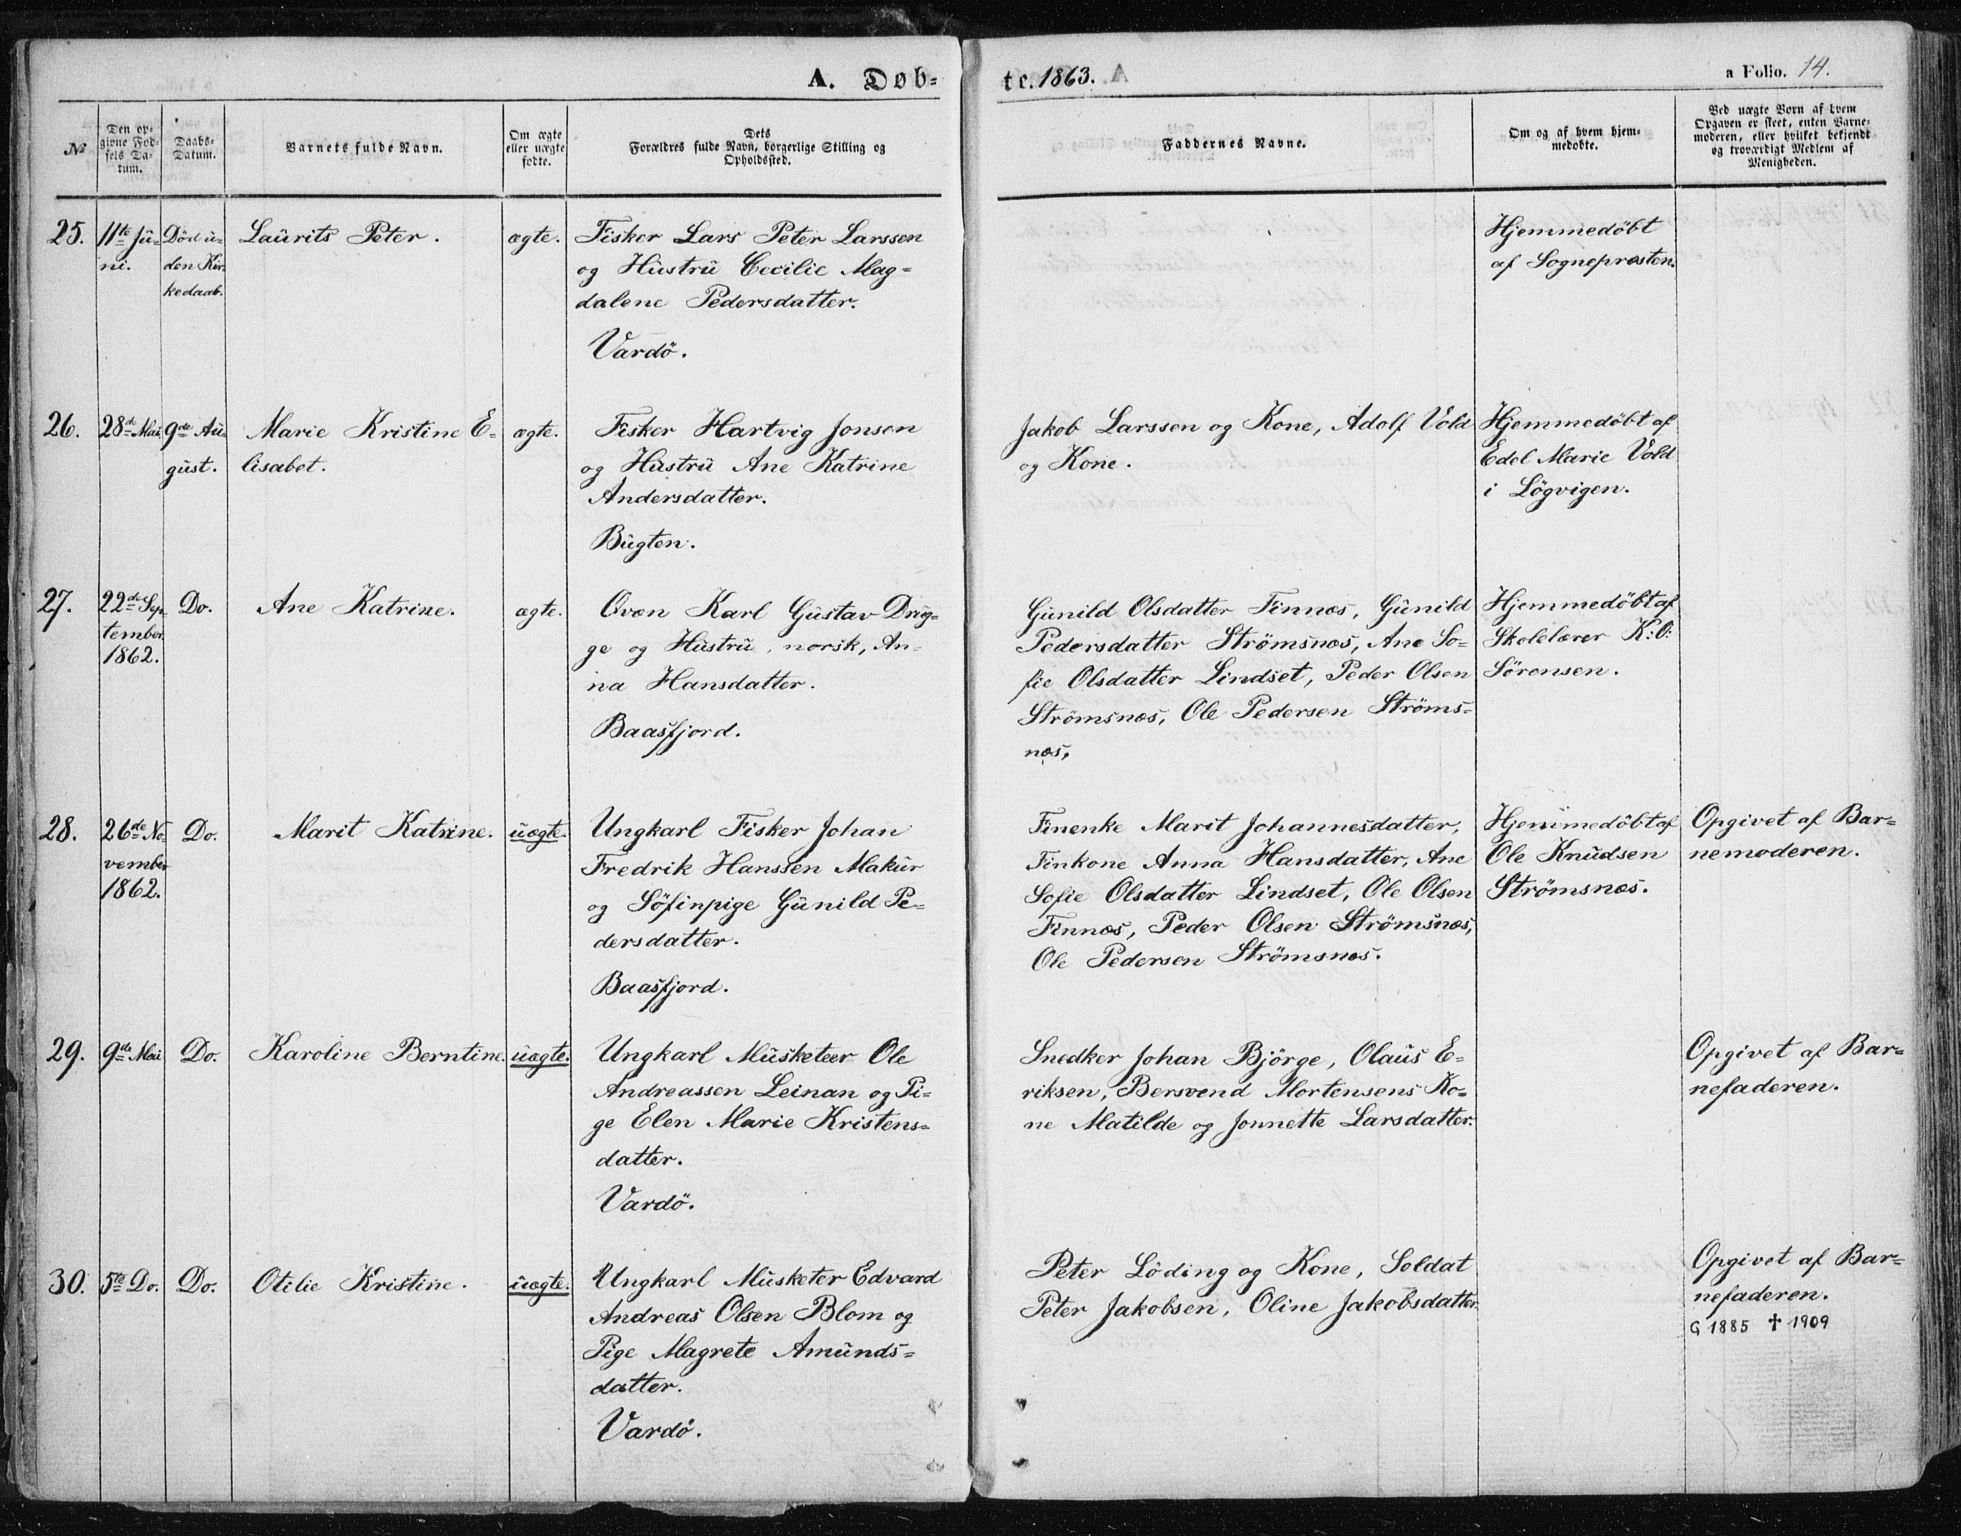 A. Døb-
te. 1863.
a Folio. 14.
№
Den op-
givne Fød-
sels Da-
tum.
Daabs-
Datum.
Barnets fulde Navn.
Om ægte
eller uægte
fødte.
Dets
Forældres fulde Navn, borgerlige Stilling og
Opholdssted.
Faddernes Navne.
Om og af hvem hjem-
medøbte.
Ved uægte Børn af hvem
Opgaven er skeet, enten Barne-
moderen, eller hvilket bekjendt
og troværdigt Medlem af
Menigheden.
25.
11te Jü-
ni.
Död ü-
den Kir-
kedaab.
Laürits Peter.
ægte.
Fisker Lars Peter Larssen
og Hüstrü Cecilie Mag-
dalene Pedersdatter.
Vardö.
Hjemmedöbt
af Sognepræsten.
26.
28de Mai.
9de Aü-
güst.
Marie Kristine E-
lisabet.
ægte.
Fisker Hartvig Jonsen
og Hüstrü Ane Katrine
Andersdatter.
Bügten.
Jakob Larssen og Kone, Adolf Vold
og Kone.
Hjemmedöbt af
Edel Marie Vold
i Lögvigen.
27.
22de Sep-
tember
1862.
Do.
Ane Katrine.
ægte.
Qvæn Karl Güstav Drüg-
ge og Hüstrü, norsk, An-
na Hansdatter.
Baasfjord.
Günild Olsdatter Finnæs, Günild
Pedersdatter Strömsnæs, Ane So-
fie Olsdatter Lindset, Peder Olsen
Strömsnæs, Ole Pedersen Ströms-
næs,
Hjemmedöbt af
Skolelærer K: O:
Sörensen.
28.
26de No-
vember
1862.
Do.
Marit Katrine.
üægte.
Ungkarl Fisker Johan
Fredrik Hanssen Makür
og Söfinpige Günild Pe-
dersdatter.
Baasfjord.
Finenke Marit Johannesdatter,
Finkone Anna Hansdatter, Ane
Sofie Olsdatter Lindset, Ole Olsen
Finnæs, Peder Olsen Strömsnæs,
Ole Pedersen Strömsnæs.
Hjemmedöbt af
Ole Knüdsen
Strömsnæs.
Opgivet af Bar-
nemoderen.
29.
9de Mai
Do.
Karoline Berntine.
üægte.
Ungkarl Müsketeer Ole
Andreassen Leinan og Pi-
ge Elen Marie Kristens-
datter.
Vardö.
Snedker Johan Björge, Olaüs E-
riksen, Bersvend Mortensens Ko-
ne Matilde og Jonnette Larsdatter.
Opgivet af Bar-
nefaderen.
30.
5te Do.
Do.
Otilie Kristine.
üægte.
Ungkarl Müsketer Edvard
Andreas Olsen Blom og
Pige Magrete Amünds-
datter.
Vardö.
Peter Löding og Kone, Soldat
Peter Jakobsen, Oline Jakobsdatter.
Opgivet af Bar-
nefaderen.
G 1885 ✝ 1909